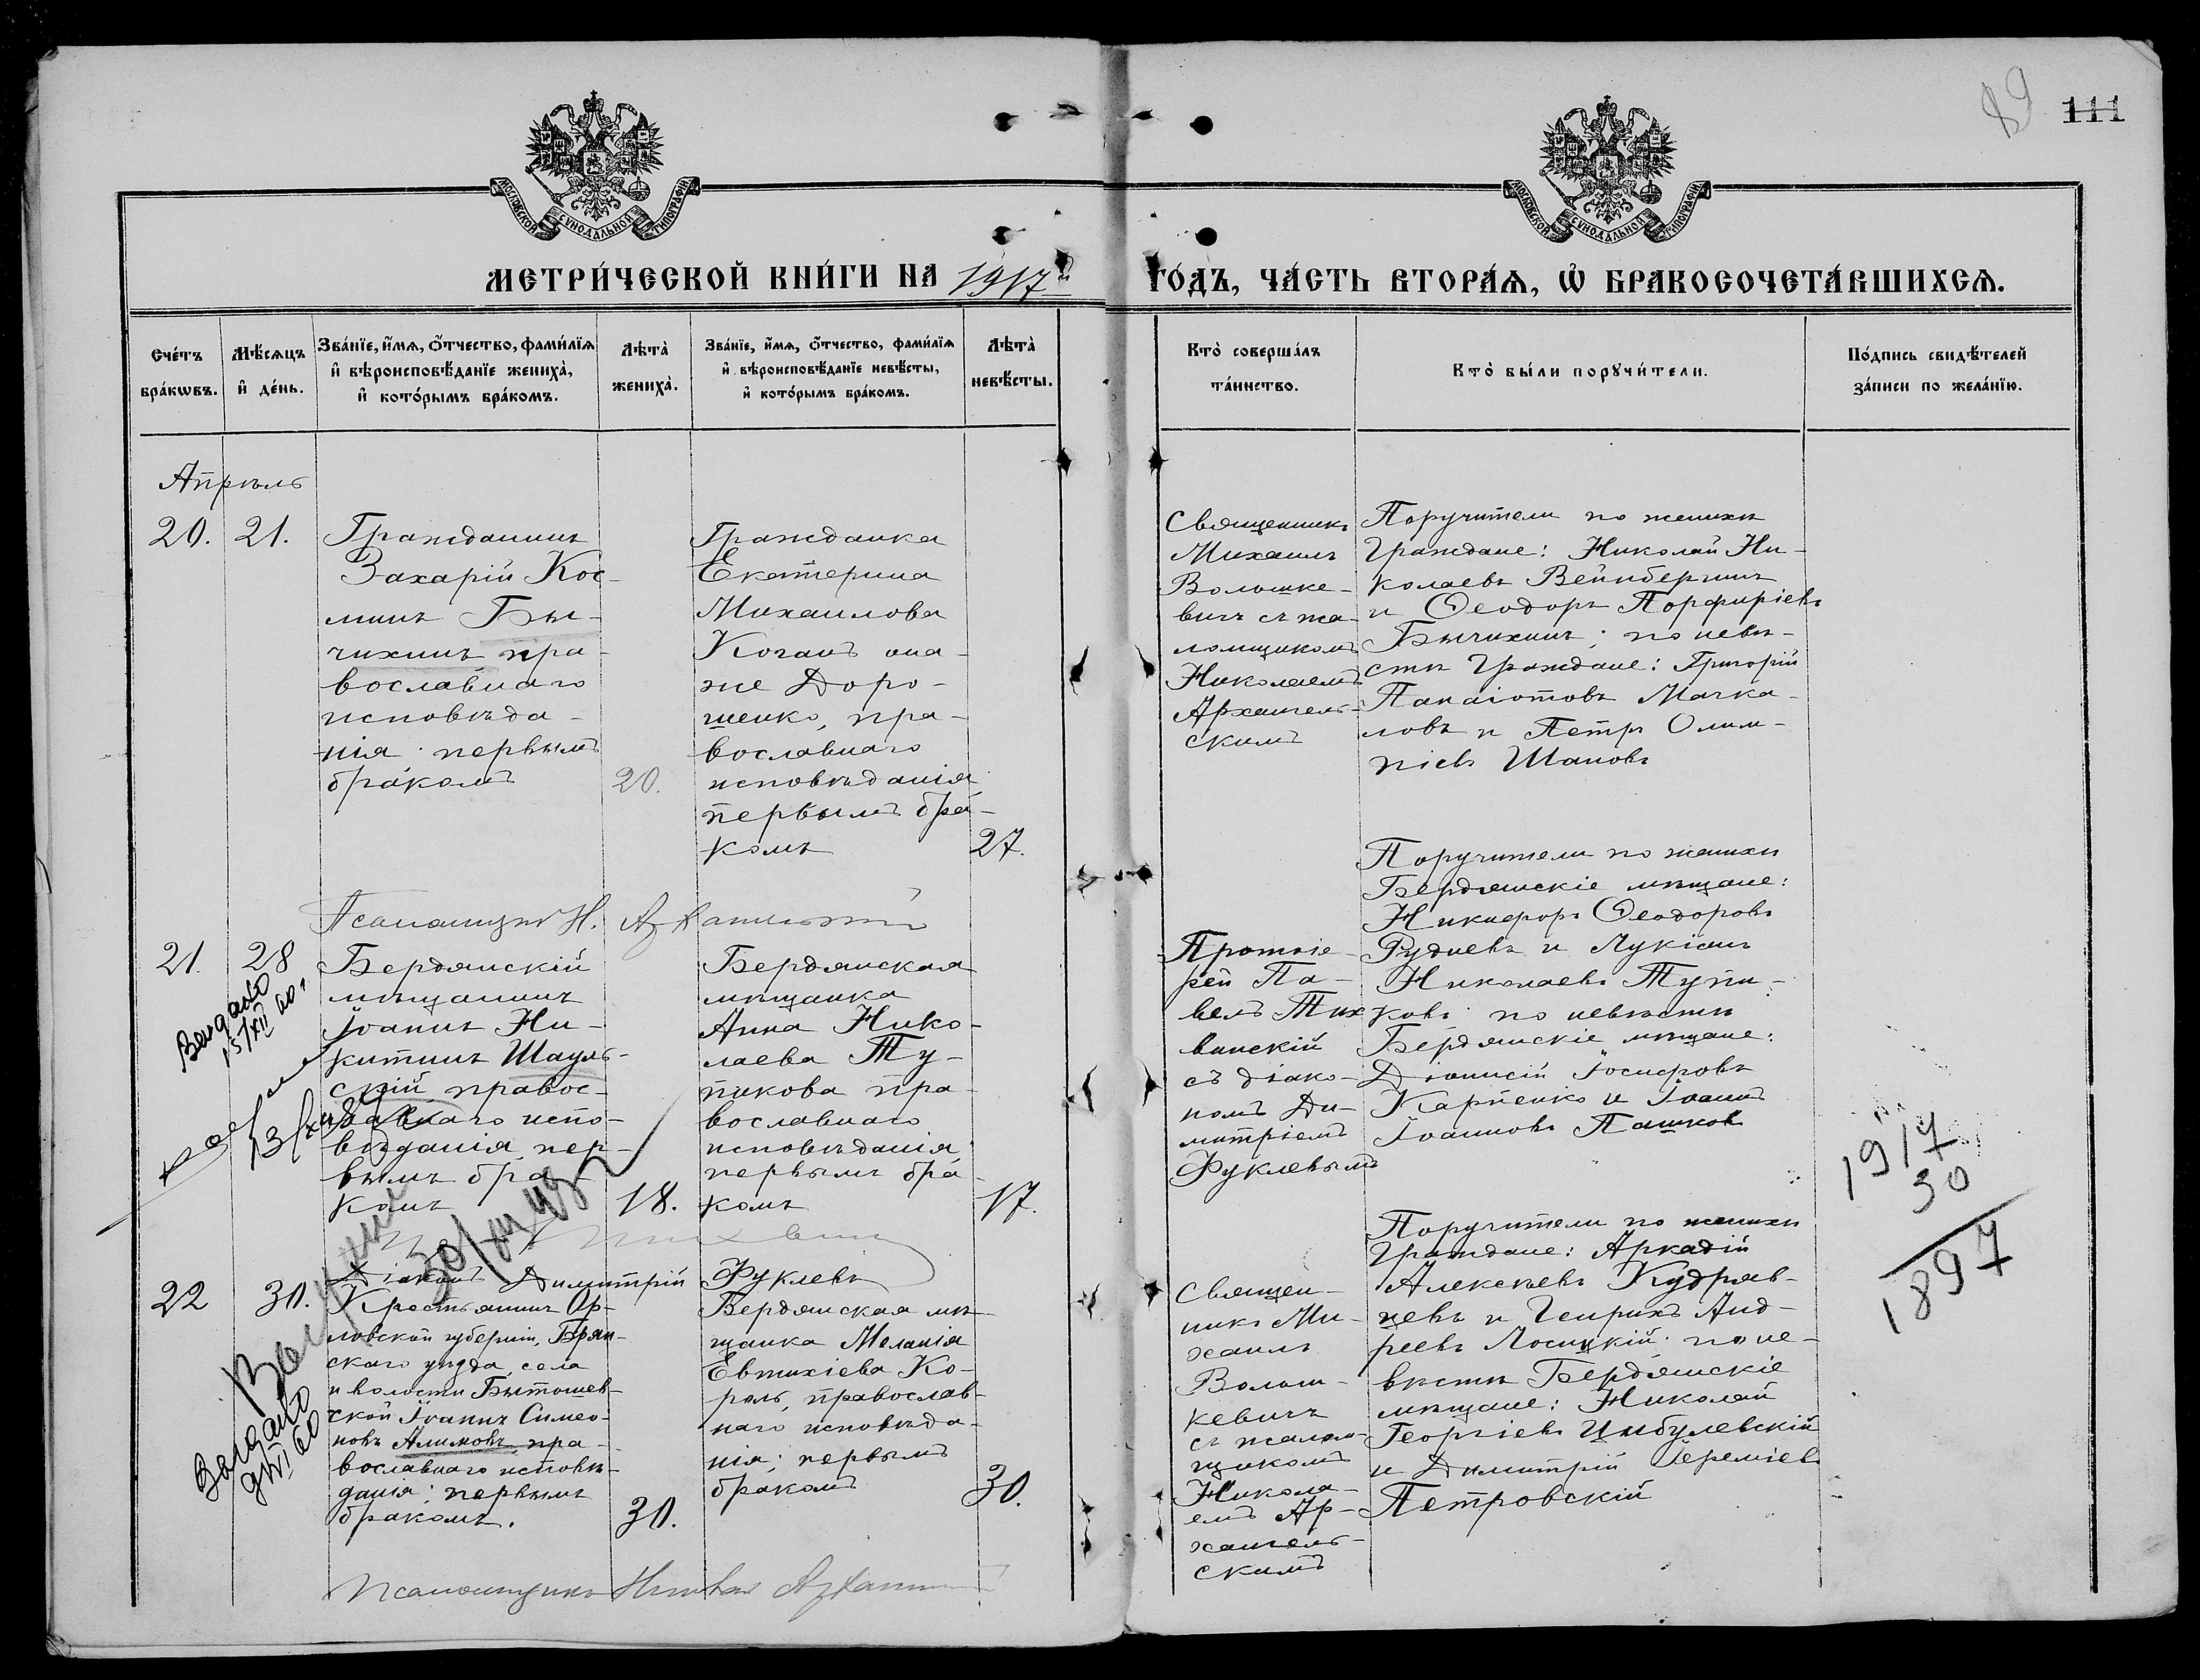 89 111
МОСКОВСКОЙ СУНОДАЛЬНОЙ ТИПОГРАФІИ
МОСКОВСКОЙ СУНОДАЛЬНОЙ ТИПОГРАФІИ
МЕТРИ́ЧЕСКОЙ КНИ́ГИ НА 1917й ГО́ДЪ, ЧА́СТЬ ВТОРА́Ѧ, Ѽ БРАКОСОЧЕТА́ВШИХСѦ.
Сче́тъ
бра́кѡвъ.
Мѣ́сѧцъ
и҆ де́нь.
Зва́нїе, и҆́мѧ, ѻ҆́тчество, фами́лїѧ
и҆ вѣроисповѣ́данїе жениха̀,
и҆ кото́рымъ бра́комъ.
Лѣта̀
жениха̀.
Зва́нїе, и҆́мѧ, ѻ҆́тчество, фами́лїѧ
и҆ вѣроисповѣ́данїе невѣ́сты,
и҆ кото́рымъ бра́комъ.
Лѣта̀
невѣ́сты.
Кто̀ соверша́лъ
та́инство.
Кто̀ бы́ли порꙋчи́тели.
По́дпись свидѣ́телей
за́писи по жела́нїю.
Апрѣль
20. 21.
Гражданинъ
Захарій Кос-
минъ Бы-
чихинъ пра-
вославнаго
исповѣда-
нія первымъ
бракомъ
20.
Гражданка
Екатерина
Михаилова
Коганъ она-
же Доро-
шенко, пра-
вославнаго
исповѣданія
первымъ бра-
комъ
27.
Священникъ
Михаилъ
Волошке-
вичъ съ пса-
ломщикомъ
Николаемъ
Архангель-
скимъ
Поручители по женихѣ
Граждане: Николай Ни-
колаевъ Вейнбергинъ
и Ѳеодоръ Порфиріевъ
Бычихинъ; по невѣ-
стѣ Граждане: Григорій
Панаіотовъ Мачка-
ловъ и Петръ Олим-
піевъ Шаповъ
Псаломщикъ Н. Архангельскій
21. 28
Бердянскій
мѣщанинъ
Іоаннъ Ни-
китинъ Шауль-
скій, правос-
лавнаго испо-
вѣданія, пер-
вымъ бра-
комъ
18.
Бердянская
мѣщанка
Анна Нико-
лаева Ту-
пикова пра-
вославнаго
исповѣданія
первымъ бра-
комъ
17.
Протоіе-
рей Па-
велъ Тих
винскій
съ діако-
номъ Ди-
митріемъ
Фуклевымъ
Поручители по женихѣ
Бердянскіе мѣщане:
Никифоръ Ѳеодоровъ
Рудневъ и Лукіанъ
Николаевъ Тупи-
ковъ по невѣстѣ
Бердянскіе мѣщане:
Діонисій Іосифовъ
Карпенко и Іоаннъ
Іоанновъ Пашковъ
Діаконъ Димитрій Фуклевъ
22 30.
Крестьянинъ Ор-
ловской губерніи, Брян-
скаго уѣзда, села
и волости Бытошев-
ской Іоаннъ Симео-
новъ Алимовъ, пра-
вославнаго исповѣ-
данія; первымъ
бракомъ.
30.
Бердянская мѣ-
щанка Меланія
Евтихіева Ко-
роль, православ-
наго исповѣда-
нія; первымъ
бракомъ
30.
Священ-
никъ Ми-
хаилъ
Волош-
кевичъ
съ псалом-
щикомъ
Никола-
емъ Ар-
хангель-
скимъ
Поручители по женихѣ
Граждане: Аркадій
Алексѣевъ Кудряв-
цевъ и Генрихъ Анд-
реевъ Лосицкій; по не-
вѣстѣ Бердянскіе
мѣщане: Николай
Георгіевъ Цибулевскій
и Димитрій Іереміевъ
Петровскій
1917
30
1897
Псаломщикъ Николай Архангельскій